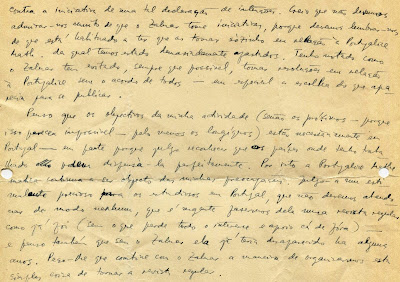 contra a iniciativa de uma tal declaração de intenções. Creio que não devemos
admirar-nos muito de que o Zaluar tome iniciativas, porque devemos lembrar-nos
de que está habituado a ter que as tomar sózinho em relação à Portugalíae
Math., da qual temos estado demasiadamente afastados. Tenho notado como
o Zaluar tem evitado, sempre que possível, tomar resoluções em relação
à Portugaliae sem o acordo de todos — em especial a escolha do que apa-
recia para se publicar.
Penso que os objectivos da minha actividade (senão os próximos — porque
isso parece impossível — pelo menos os longínquos) estão necessariamente em
Portugal — em parte porque julgo reconhecer que os países onde tenho tra-
balhado podem dispensá-la perfeitamente. Por isto a Portugaliae Mathe-
matica continua a ser objecto das minhas preocupações. Julgo que está
muito para os estudiosos em Portugal, que não devemos aban-
donar de modo nenhum, que é urgente fazermos dela numa revista regular
como já foi (sem o que perde todo o interesse e apoio cá de fora) —
e penso também que sem o Zaluar ela já teria desaparecido há alguns
anos. Peço-lhe que combine com o Zaluar a maneira de organizarmos esta
simples coisa de tornar a revista regular.